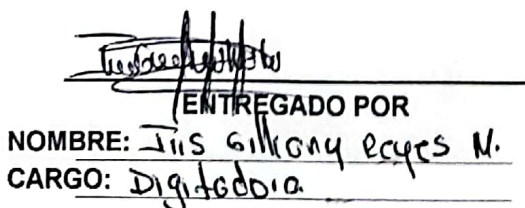 ENTREGADO POR
NOMBRE: Iris Gilliany Reyes M.
CARGO: Digitadora